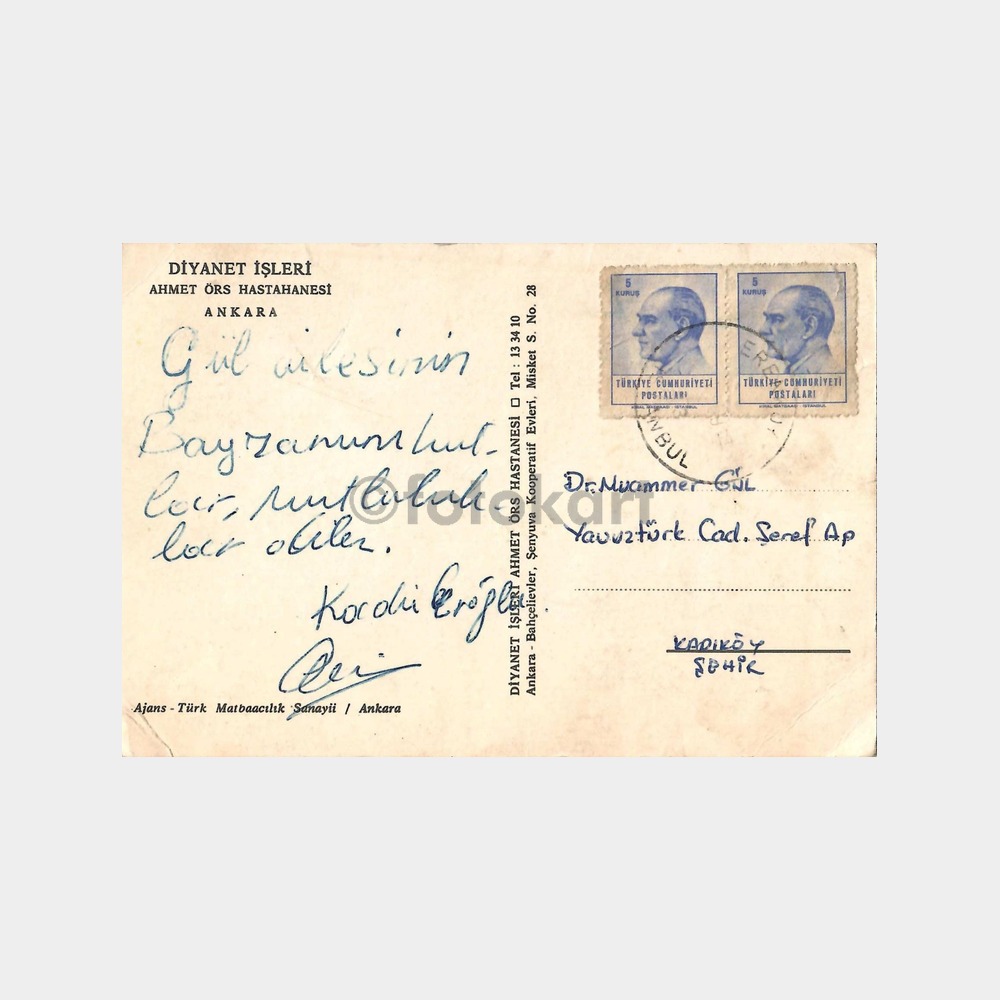 DİYANET İŞLERİ
AHMET ÖRS HASTAHANESİ
ANKARA
Gül ailesinin
Bayramını kut-
lar, mutluluk-
lar diler.
Eroğlu
Ajans - Türk Matbaacılık Sanayii / Ankara
DİYANET İŞLERİ AHMET ÖRS HASTANESİ □ Tel : 13 34 10
Ankara - Bahçelievler, Şenyuva Kooperatif Evleri, Misket S. No. 28
5
KURUŞ
TÜRKİYE CUMHURİYETİ
POSTALARI
KIRAL MATBAASI - İSTANBUL
5
KURUŞ
TÜRKİYE CUMHURİYETİ
POSTALARI
KIRAL MATBAASI - İSTANBUL
Dr. Muammer GÜL
Yavuztürk Cad. Şeref Ap
KADIKÖY
ŞEHİR
©fotokart